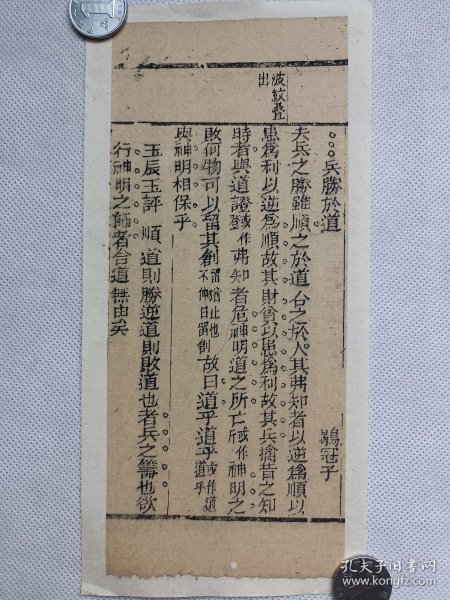 波紋疊
出
兵勝於道
鶡冠子
夫兵之勝雖順之於道合之於人其弗知者以逆為順以
患為利以逆為順故其財貧以患為利故其兵擒昔之知
時者與道證或作弗知者危神明道之所亡或作神明之
敗何物可以留其創留猶止也不伸日留創故曰道乎道乎或作道道乎
與神明相保乎
玉辰玉評 順道則勝逆道則敗道也者兵之籌也欲
行神明之師者合道無由矣
孔夫子旧书网
book.kongfz.com